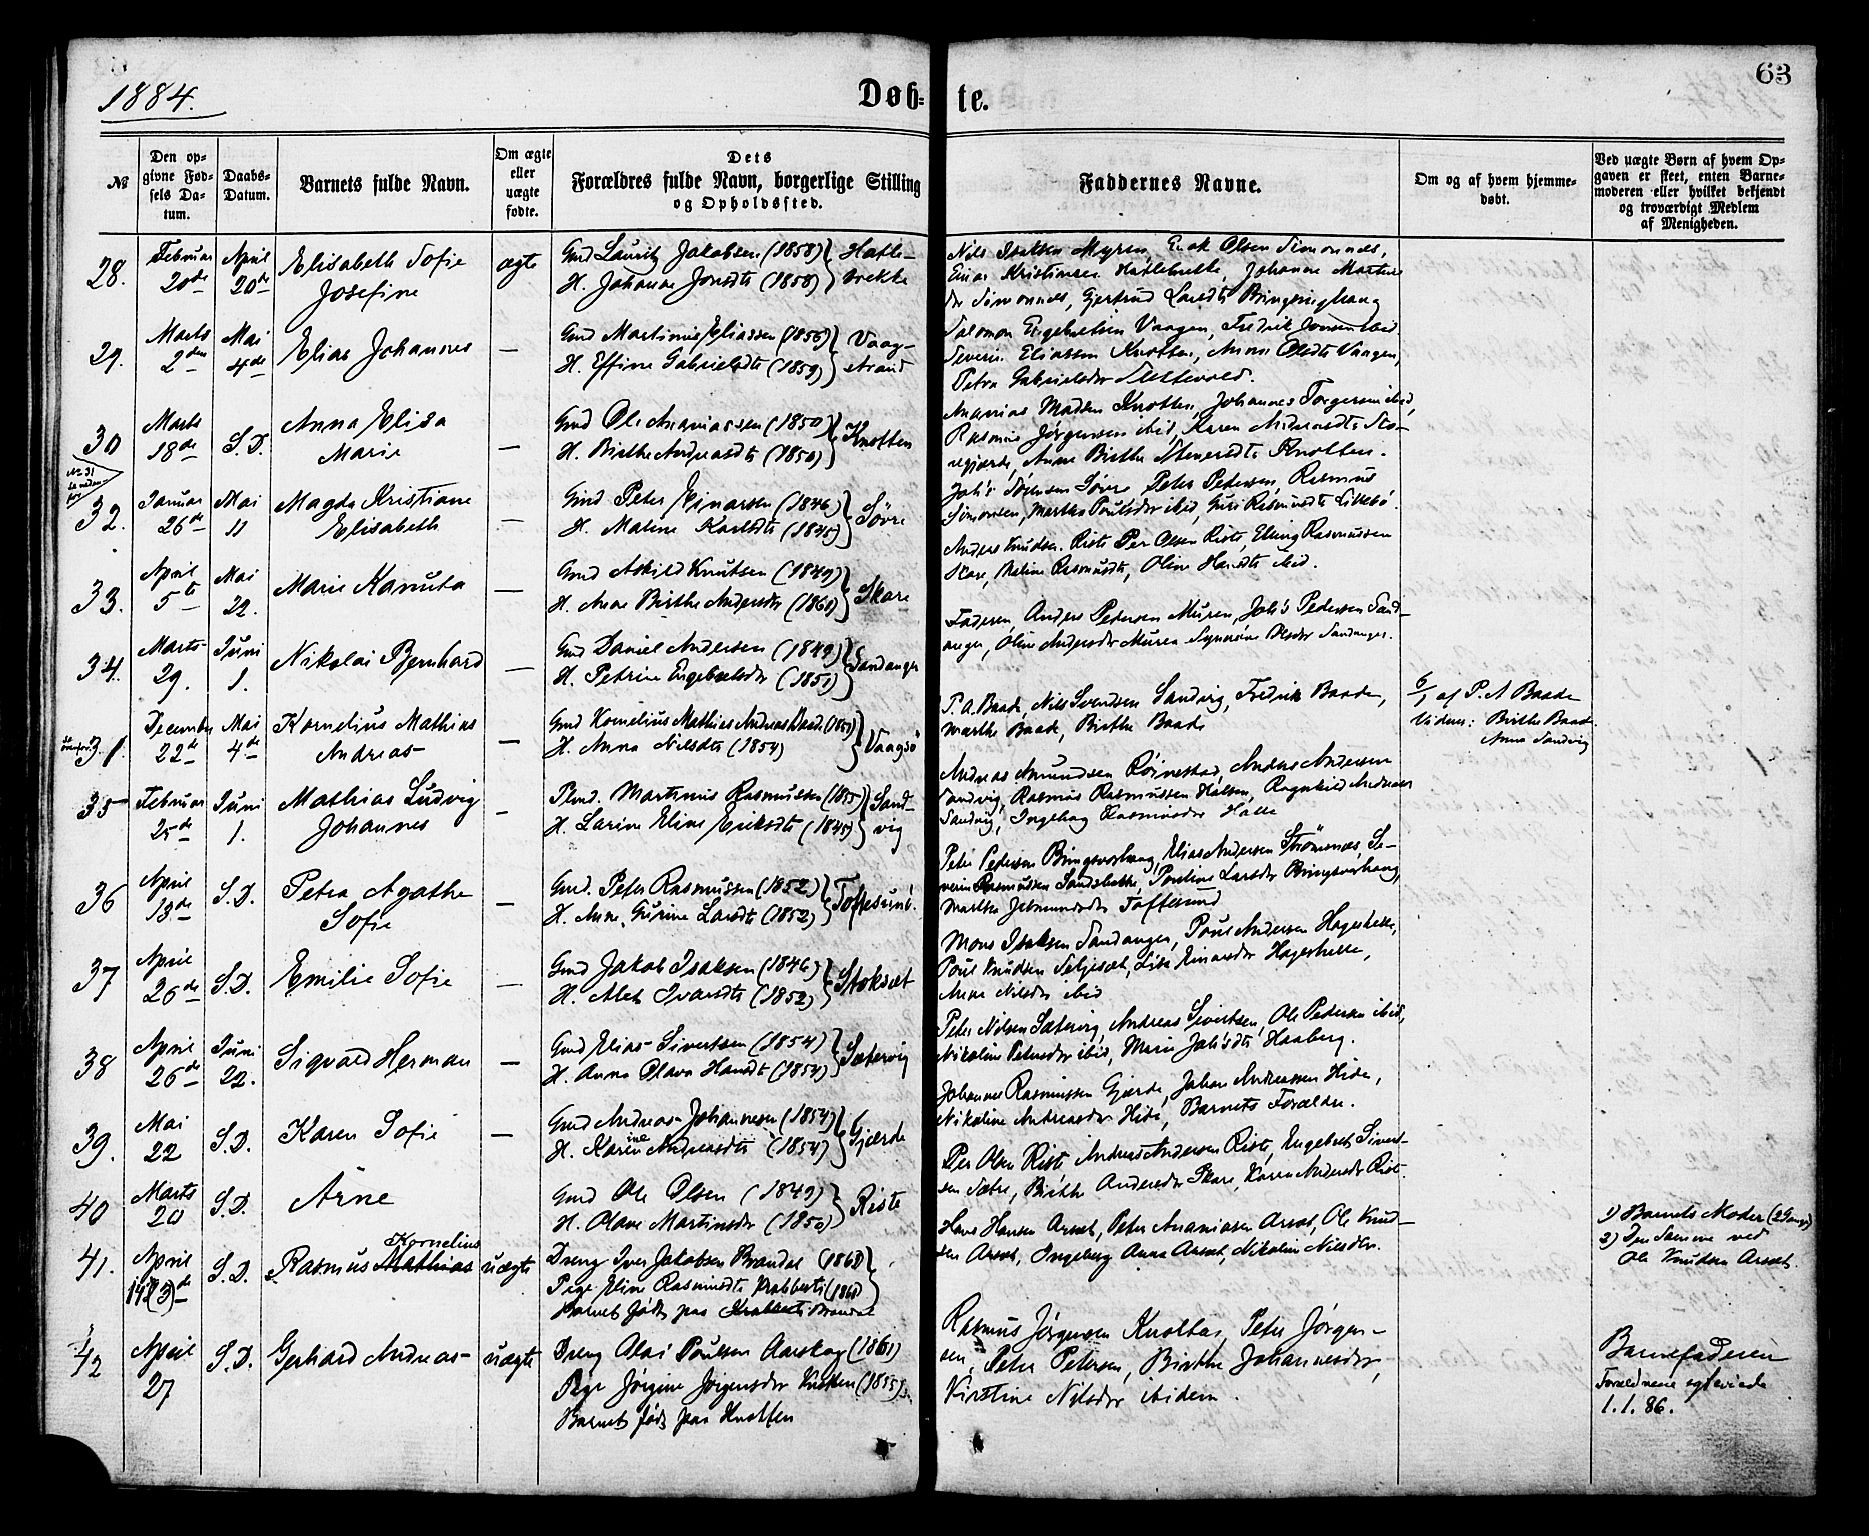 63
1884.
Døb- te.
№
Den opgivne Fødsels Datum.
Daabs-Datum.
Barnets fulde Navn.
Om ægte eller uægte fødte.
Dets Forældres fulde Navn, borgerlige Stilling og Opholdssted.
Faddernes Navne.
Om og af hvem hjemmedøbt.
Ved uægte Børn af hvem Opgaven er skeet, enten Barnemoderen eller hvilket bekjendt og troværdigt Medlem af Menigheden.
28. Februar 20de April 20de Elisabeth Sofie Josefine ægte
Gmd Laurits Jakobsen (1858)
H. Johanne Jonsdtr (1858)
Nils Isaksen Myren, Enok Olsen Simonnes,
Einar Kristiansen Johanne Martins
dr Simonnes, Gjertrud Larsdtr Bringsinghaug
29. Marts 2den Mai 4de Elias Johannes —
Gmd Martinus Eliassen (1856)
H. Effine Gabrielsdtr (1859)
Vaagstrand
Salomon Engebretsen Vaagen, Fredrik ibid
Severin Eliassen Knotten, Anne Olsdtr Vaagen,
Petra Gabrielsdr
30 Marts 18de S.D. Anna Elisa Marie —
Gmd Ole Ananiassen (1850)
H. Birthe Andreasdtr (1850)
Knotten
Ananias Madsen Knotten, Johannes Torgersen ibid,
Rasmus Jørgensen ibid, Karen
Anne Birthe Knotten.
№ 31 se nedenfor
32. Januar 26de Mai 11 Magda Kristiane Elisabeth —
Gmd Peter Einarsen (1846)
H. Malene Karlsdtr (1845)
Søvre
Joh's Søvre Peter Pedersen, Rasmus
Simonsen, Martha Poulsdr ibid, Guri Rasmusdtr Lillebø.
33. April 5te Mai 22. Marie Kanuta —
Gmd Askild Knutsen (1849)
H. Anne Birthe Andersdr (1860)
Skare
Anders Knudsen Riste Per Olsen Riste, Elling Rasmussen
Skare, Rasmusdtr, Oline Hansdtr ibid.
34. Marts 29. Juni 1. Nikolai Bernhard —
Gmd Daniel Andersen (1849)
H. Petrine Engebretsdr (1851)
Sandanger
Faderen, Anders Pedersen Muren, Joh's Pedersen Sandanger,
Oline Andersdr Muren Synnøve Olsdr Sandanger.
31. December 22de Mai 4de Kornelius Mathias Andreas —
Gmd Kornelius Mathias Andreas Baade
H. Anna Nilsdtr (1854)
Vaagsø
P.A. Baade, Nils Svendsen Sandvig, Fredrik Baade,
Marthe Baade, Birthe Baade
6/1 af P. A Baade
Vidner: Birthe Baade
Anna Sandvig
35 Februar 25de Juni 1. Mathias Ludvig Johannes —
Plmd. Martinus Rasmussen (1855)
H. Larine Eline Eriksdtr (1845)
Sandvig
Andreas Amundsen Røinestad, Anders Andersen
Sandvig, Rasmus Rasmussen Ragnhild
Sandvig, Ingeborg Rasmusdr
36 April 13de S.D. Petra Agathe Sofie —
Gmd. Peter Rasmussen (1852)
H. Anne Gurine Larsdtr (1852)
Toftesund.
Peter Pedersen Bringsvorhaug, Elias Andersen Strømsnes, Severin
Rasmussen Pauline Larsdr Bringsvorhaug,
Marthe Toftesund
37 April 26de S.D. Emilie Sofie —
Gmd Jakob Isaksen (1846)
H. Alet Ivarsdtr (1852)
Stoksæt
Mons Isaksen Sandanger, Poul Andersen
Poul Knudsen Seljeset, Lisa Einarsdr
Anne Nilsdr ibid
38 April 26de Juni 22. Sigvald Herman —
Gmd Elias Sivertsen (1854)
H. Anna Olava Hansdtr (1854)
Sætervig
Peter Nilsen Sætervig, Andreas Sivertsen, Ole Pedersen ibid,
Nikoline Petersdr ibid, Marie Joh'sdtr Haaberg.
39. Mai 22 S.D. Karen Sofie —
Gmd Andreas Johannesen (1854)
H. Karenine Andreasdtr (1854)
Gjærde
Johannes Rasmussen Gjærde, Johan Andreassen Hide,
Nikoline Andreasdr Hide, Barnets Forældre.
40 Marts 20 S.D. Arne
Gmd Ole Olsen (1849)
H. Olave Martinsdr (1850)
Riste
Per Olsen Riste Andreas Andersen Riste, Engebret Sivertsen
Sætre, Birthe Andersdr Skare, Karen Andersdr Riste.
41. April S.D. Rasmus Kornelius Mathias uægte
Dreng Iver Jakobsen Brandal (1860)
Pige Eline Rasmusdtr (1860)
Barnet født paa Brandal
Hans Hansen Aarset, Peter Ananiassen Aarset, Ole Knudsen
Aarset, Ingeborg Anna Aarset, Nikoline Nilsdtr.
1) Barnets Moder (2 Gange)
2) Den Samme ved
Ole Knudsen Aarset.
42 April 27 S.D. Gerhard Andreas uægte
Dreng Olai Poulsen Aarskog (1861)
Pige Jørgine Jørgensdr Knotten (1855)
Barnet født paa Knotten
Rasmus Jørgensen Knotten, Peter Jørgensen,
Peter Petersen, Birthe Johannesdr,
Kirstine Nilsdr ibidem.
Barnefaderen
Forældrene egteviede
1.1.86.